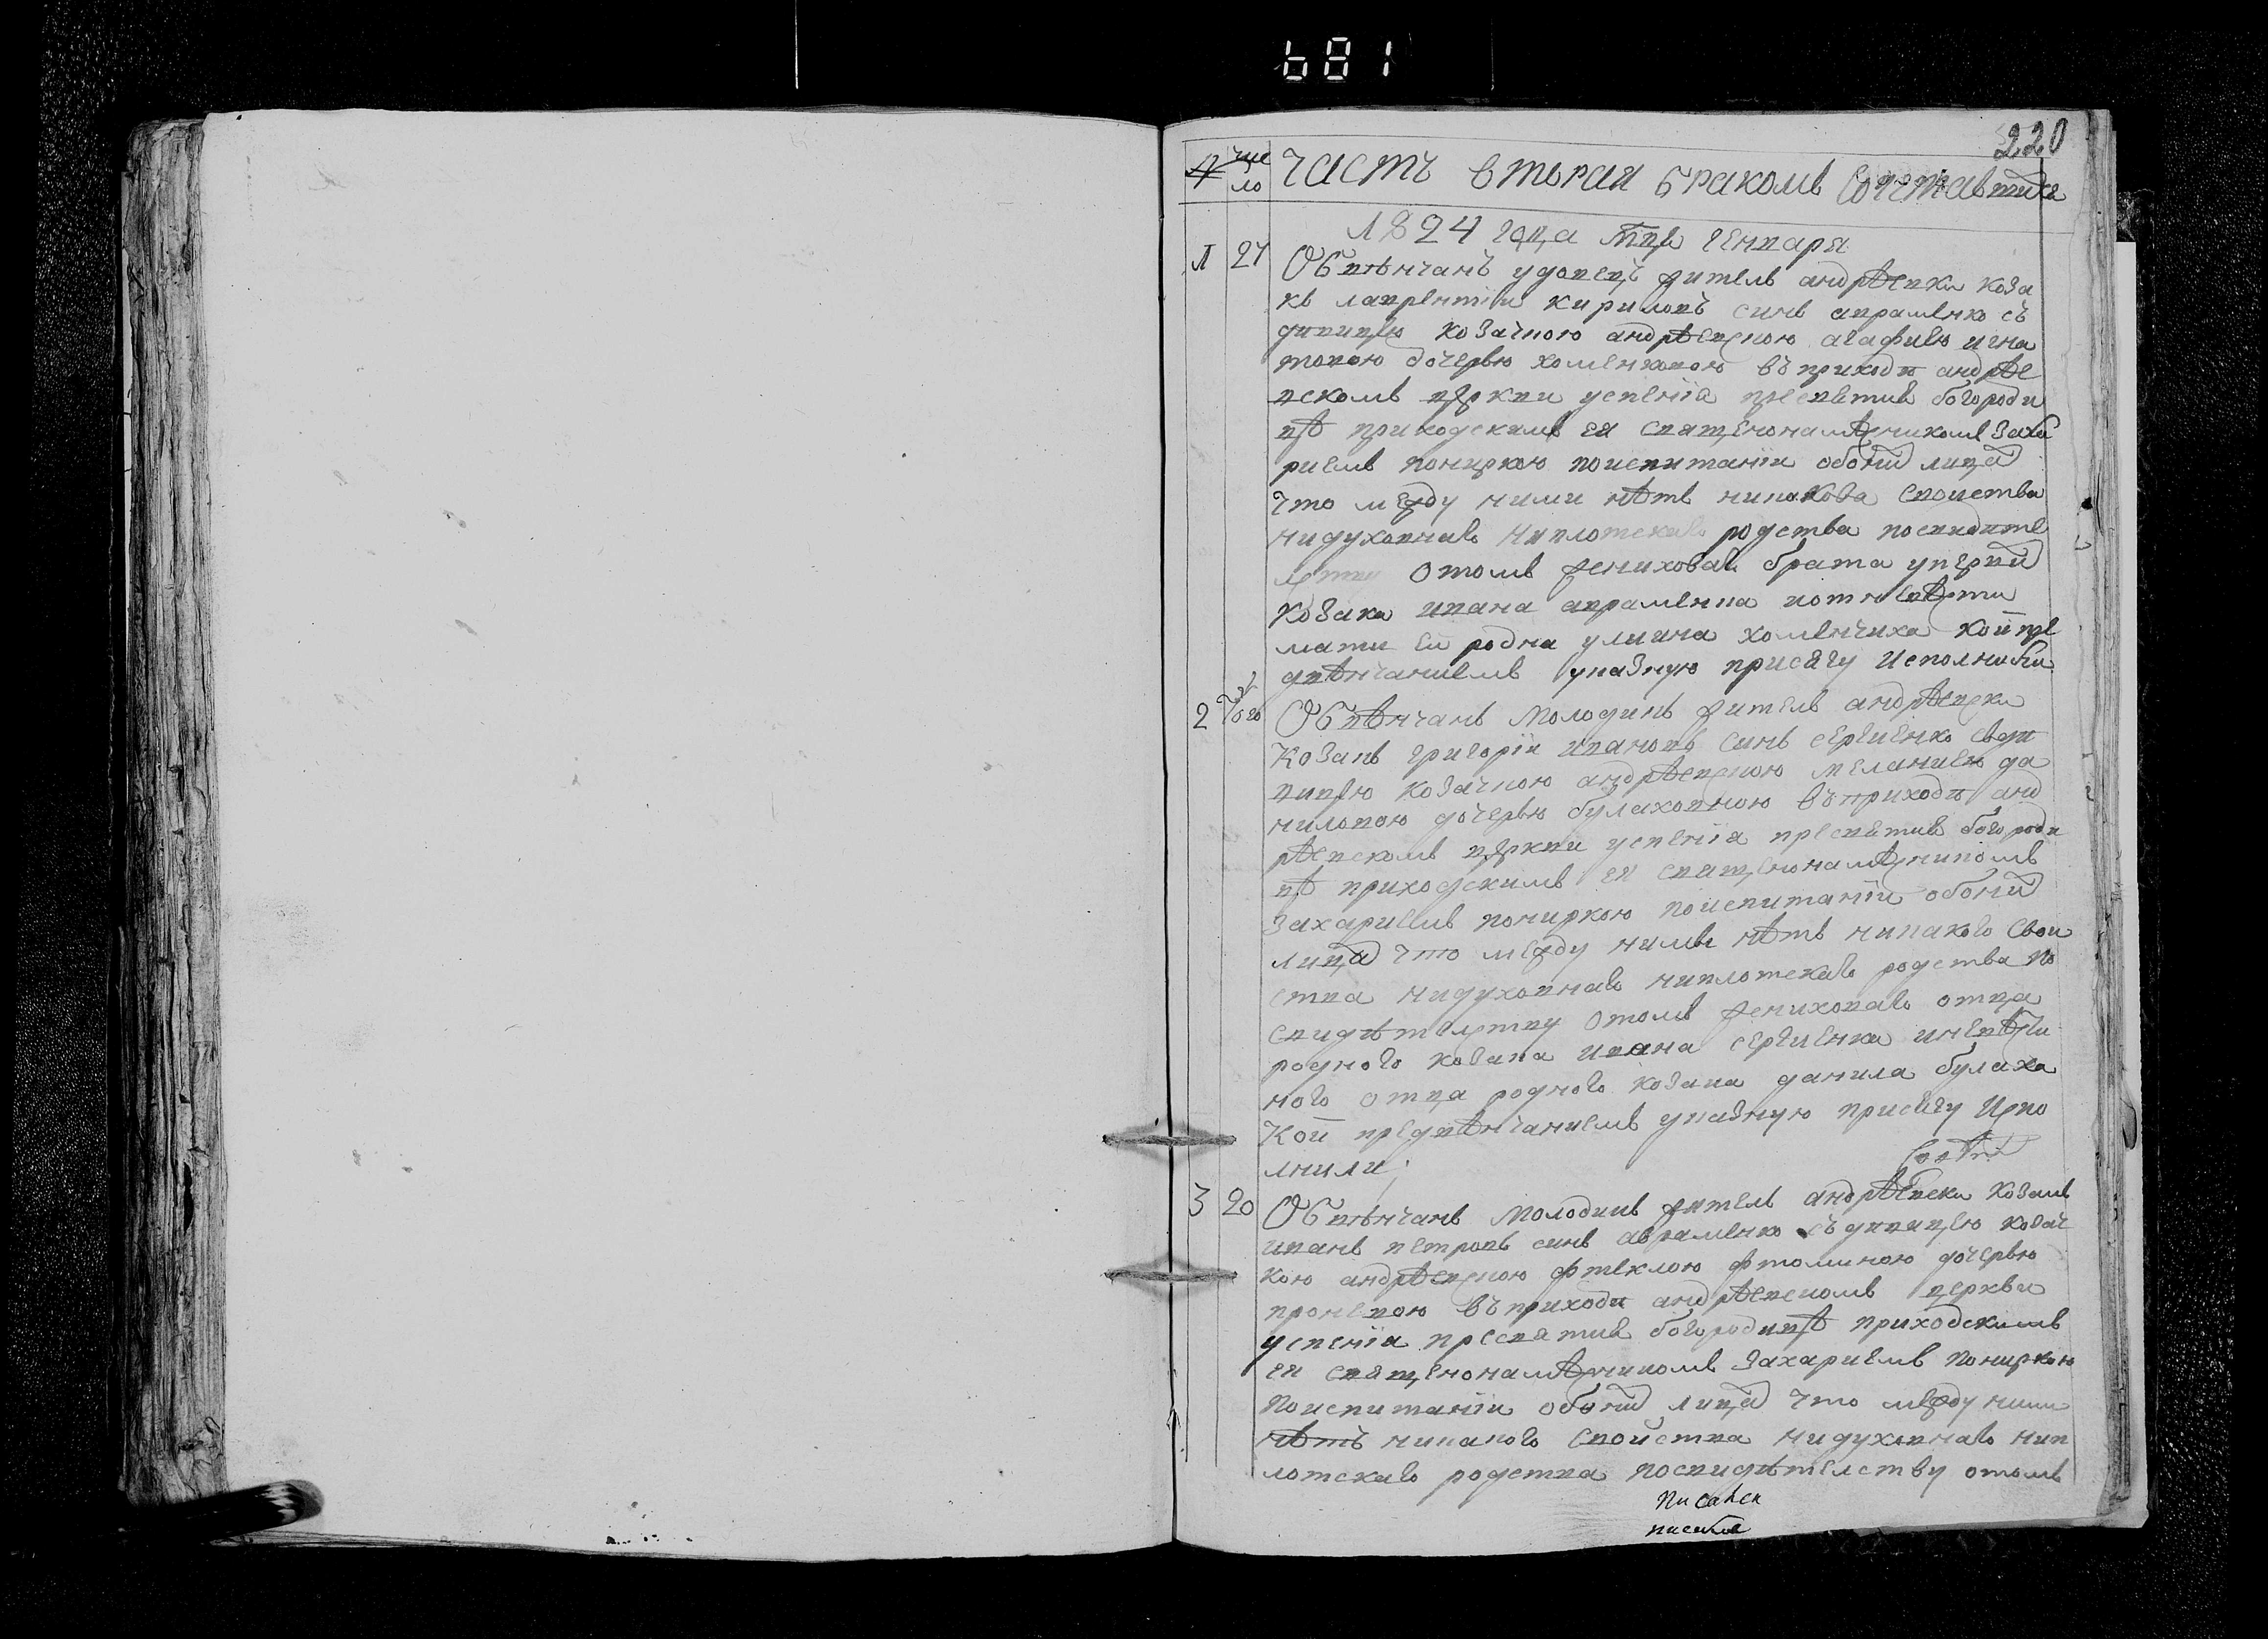 681
220
№ число Часть вторая бракомъ сочетавшихся
1824 года мца генваря
1 27 Обвѣнчанъ удовецъ житель андрѣевки коза
къ лаврентіи кириловъ синъ авраменко съ
дивицею козачкою андрѣевскою агафиею игна
товою дочерью хоменковою въ приходи андрѣе
вскомъ церкви успенія пресвятив богороди
цѣ приходскимъ ея священонамѣсникомъ Заха
риемъ пониркою поиспитаніи обоих лица
что между ними нѣтъ никакова своиства
нидуховнаго ниплотскаго родства посвидите
лству отомъ жениховаго брата
козака ивана авраменка иотневѣсти
мати ей родна улиина хоменчиха кой пре
двѣнчаниемъ указную присягу исполнили
2 Обвѣнчанъ молодикъ житель андрѣевски
козакъ григоріи ивановъ синъ сергиенко сведи
вицею козачкою андрѣевскою меланиею да
ниловою дочерью булаховною въ приходи анд
рѣевскомъ церкви успенія пресвятив богороди
цѣ приходскимъ ея священонамѣсникомъ
Захариемъ пониркою поиспитаніи обоих
лица что между нимы нѣтъ никакого свои
ства нидуховнаго ниплотскаго родства по
свидѣтелству отомъ жениховаго отца
родного козака ивана сергиенка иневѣсти
ного отца родного козака данила булаха
кои предвѣнчаниемъ указную присягу испо
лнили;
3 20 Обвѣнчанъ молодикъ житель андрѣевски козакъ
иванъ петровъ синъ авраменко съ дивицею козач
кою андрѣевскою фтеклою фтоминою дочерью
проневою въ приходи андрѣевскомъ церкви
успенія пресвятив богородицѣ приходскимъ
ея священонамѣсникомъ Захариемъ пониркою
поиспитаніи обоих лица что между ними
нѣтъ никакого свойства нидуховнаго нип
лотскаго родства посвидѣтелству отомъ